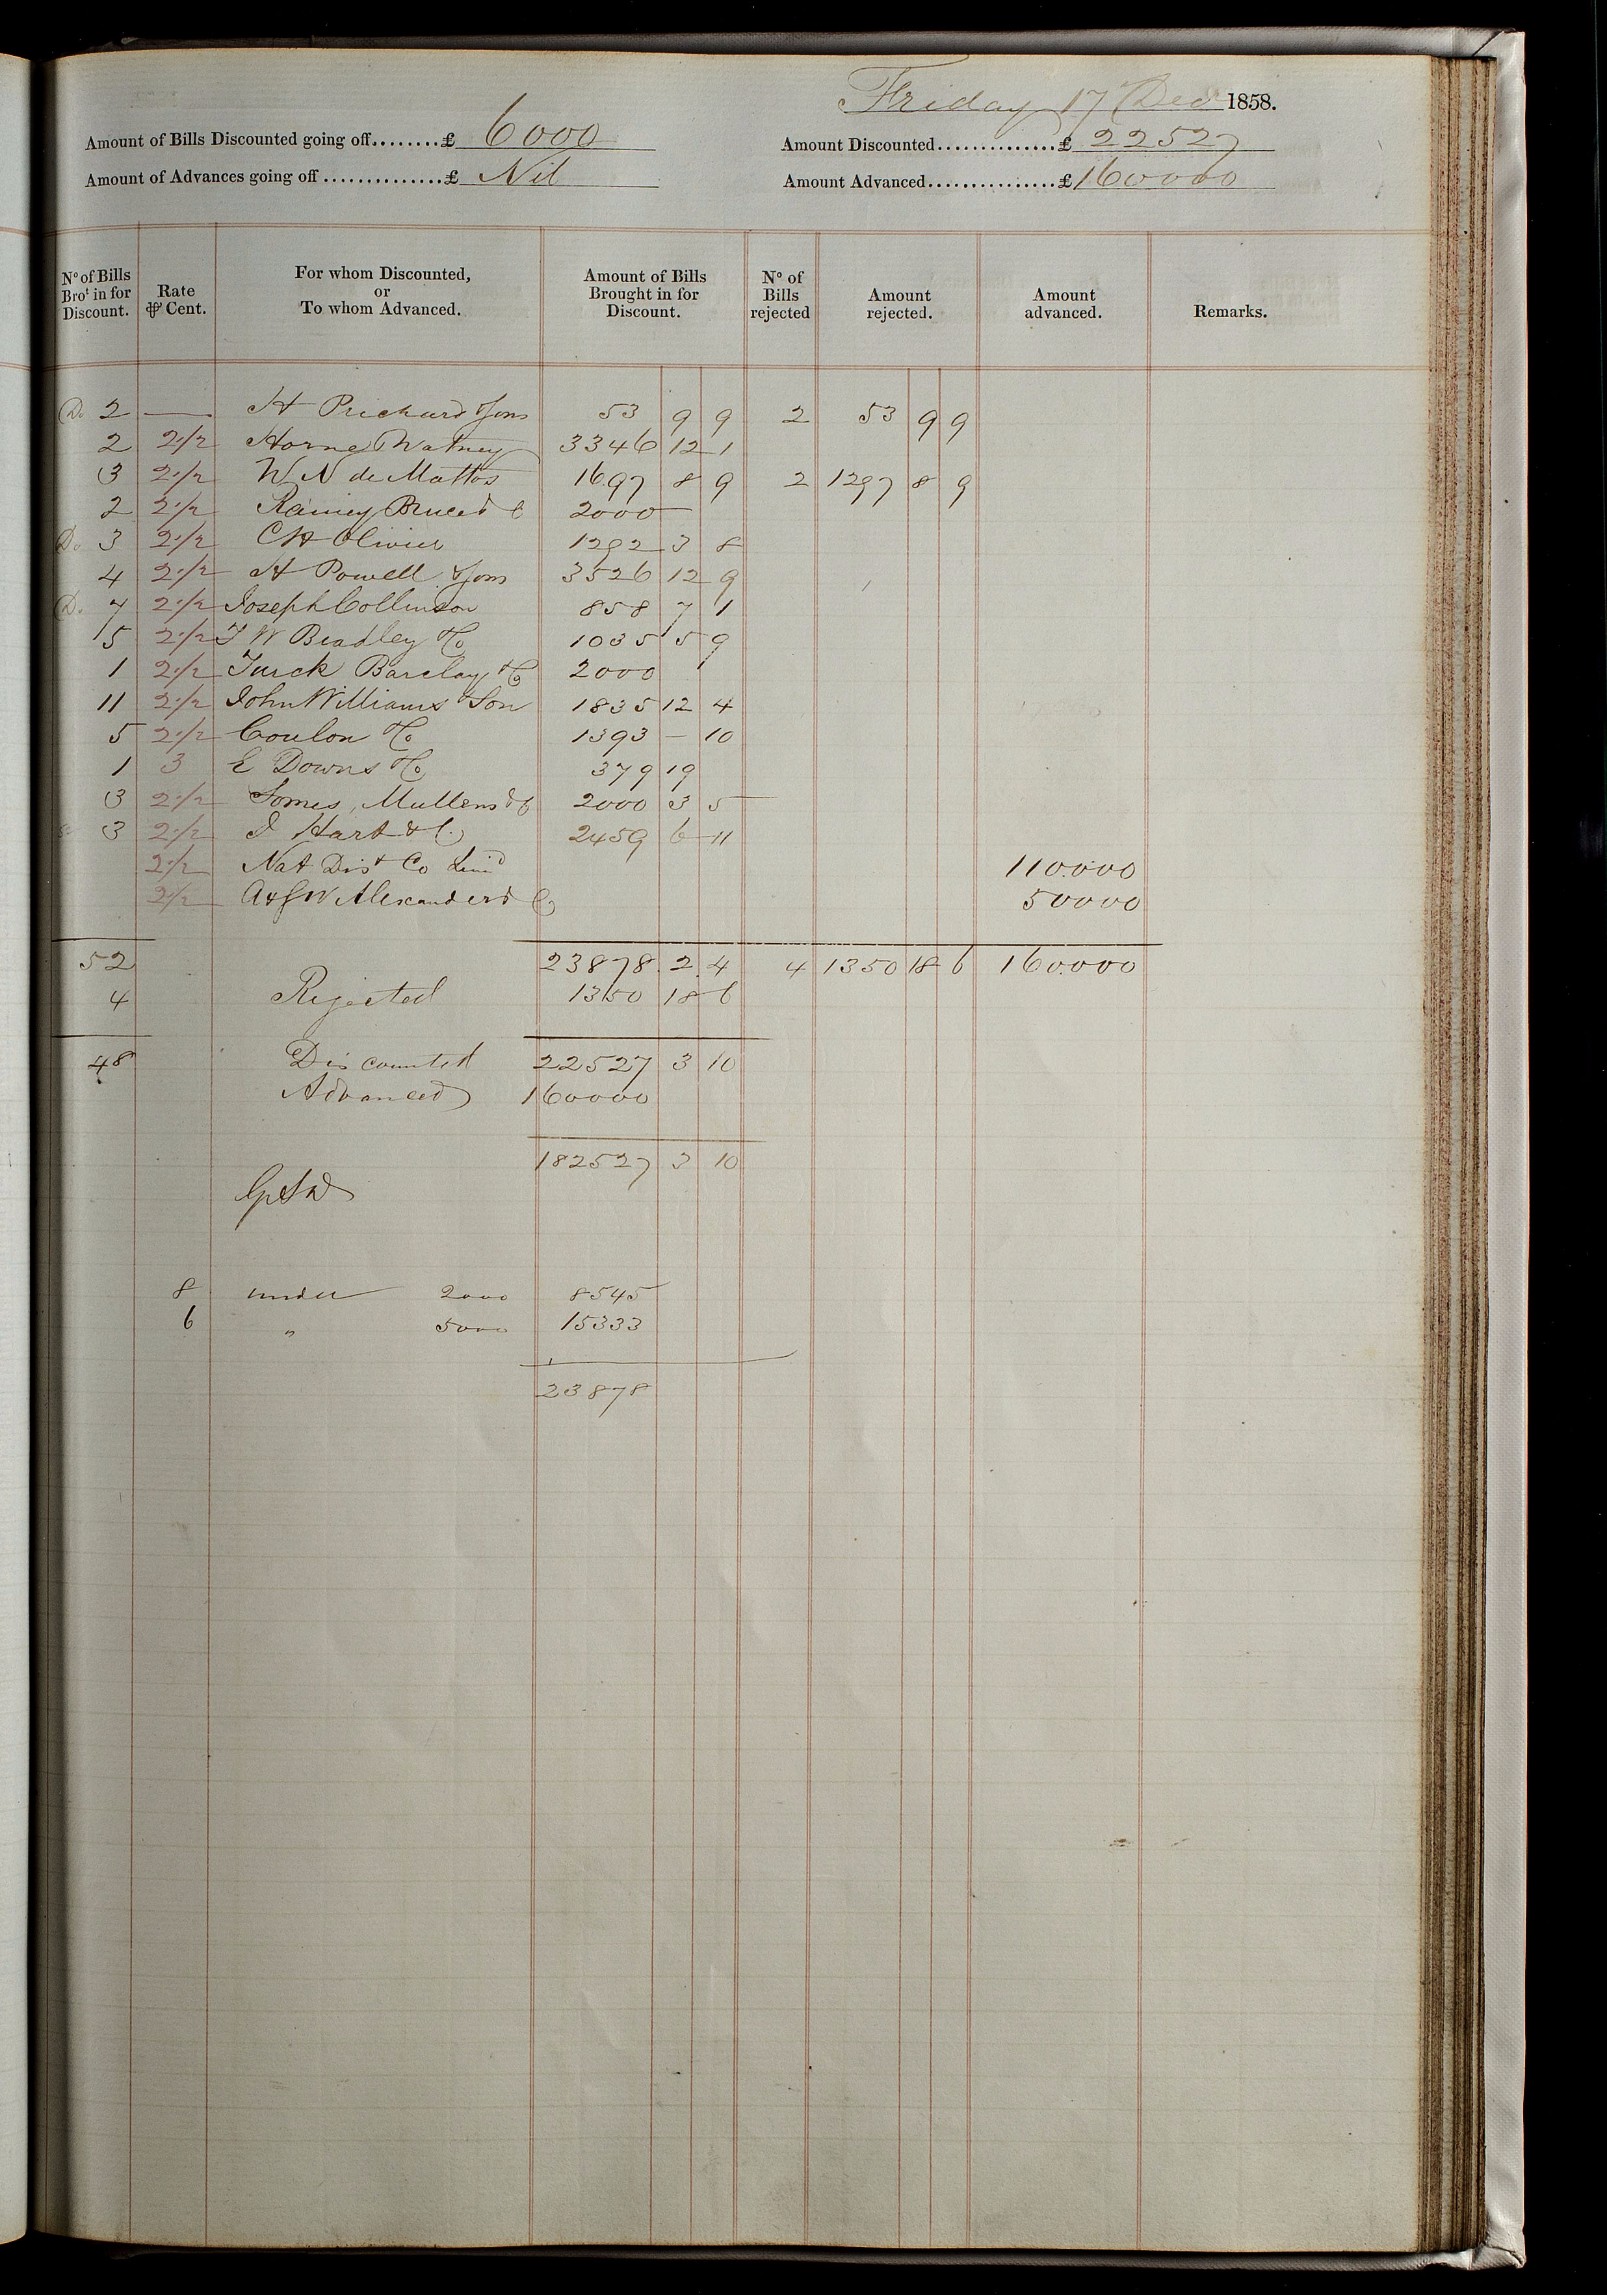 Friday 17 Dec 1858.
Amount of Bills Discounted going off........£ 6000
Amount Discounted..............£ 22527
Amount of Advances going off...............£ Nil
Amount Advanced................£ 160000
No of Bills Brot in for Discount. Rate ⅌ Cent. For whom Discounted, or To whom Advanced. Amount of Bills Brought in for Discount. No of Bills rejected Amount rejected. Amount advanced. Remarks.
Do 2 — H Prichard & Sons 53 9 9 2 53 9 9
2 2·/2 Horne Watney 3346 12 1
3 2·/2 W N de Mattos 1697 8 9 2 1297 8 9
2 2·/2 Rainey Bruce & C 2000 —
Do 3 2·/2 C H Olivier 1292 3 8
4 2·/2 H Powell & Sons 3526 12 9
Do 7 2·/2 Joseph Collinson 858 7 1
5 2·/2 T W Bradley & Co 1035 5 9
1 2·/2 Turck Barclay & Co 2000
11 2·/2 John Williams & Son 1835 12 4
5 2·/2 Coulon & Co 1393 — 10
1 3 E Downs & Co 379 19
3 2·/2 Somes, Mullens & C 2000 3 5
3 2·/2 J Hart & Co 2459 6 11
2·/2 Nat Dist Co Limd 110.000
2·/2 A & G W Alexander & Co 50000
52 23878 2 4 4 1350 18 6 160.000
4 Rejected 1350 18 6
48 Discounted 22527 3 10
Advanced 160000
182527 3 10
8 under 2000 8545
6 " 5000 15333
23878